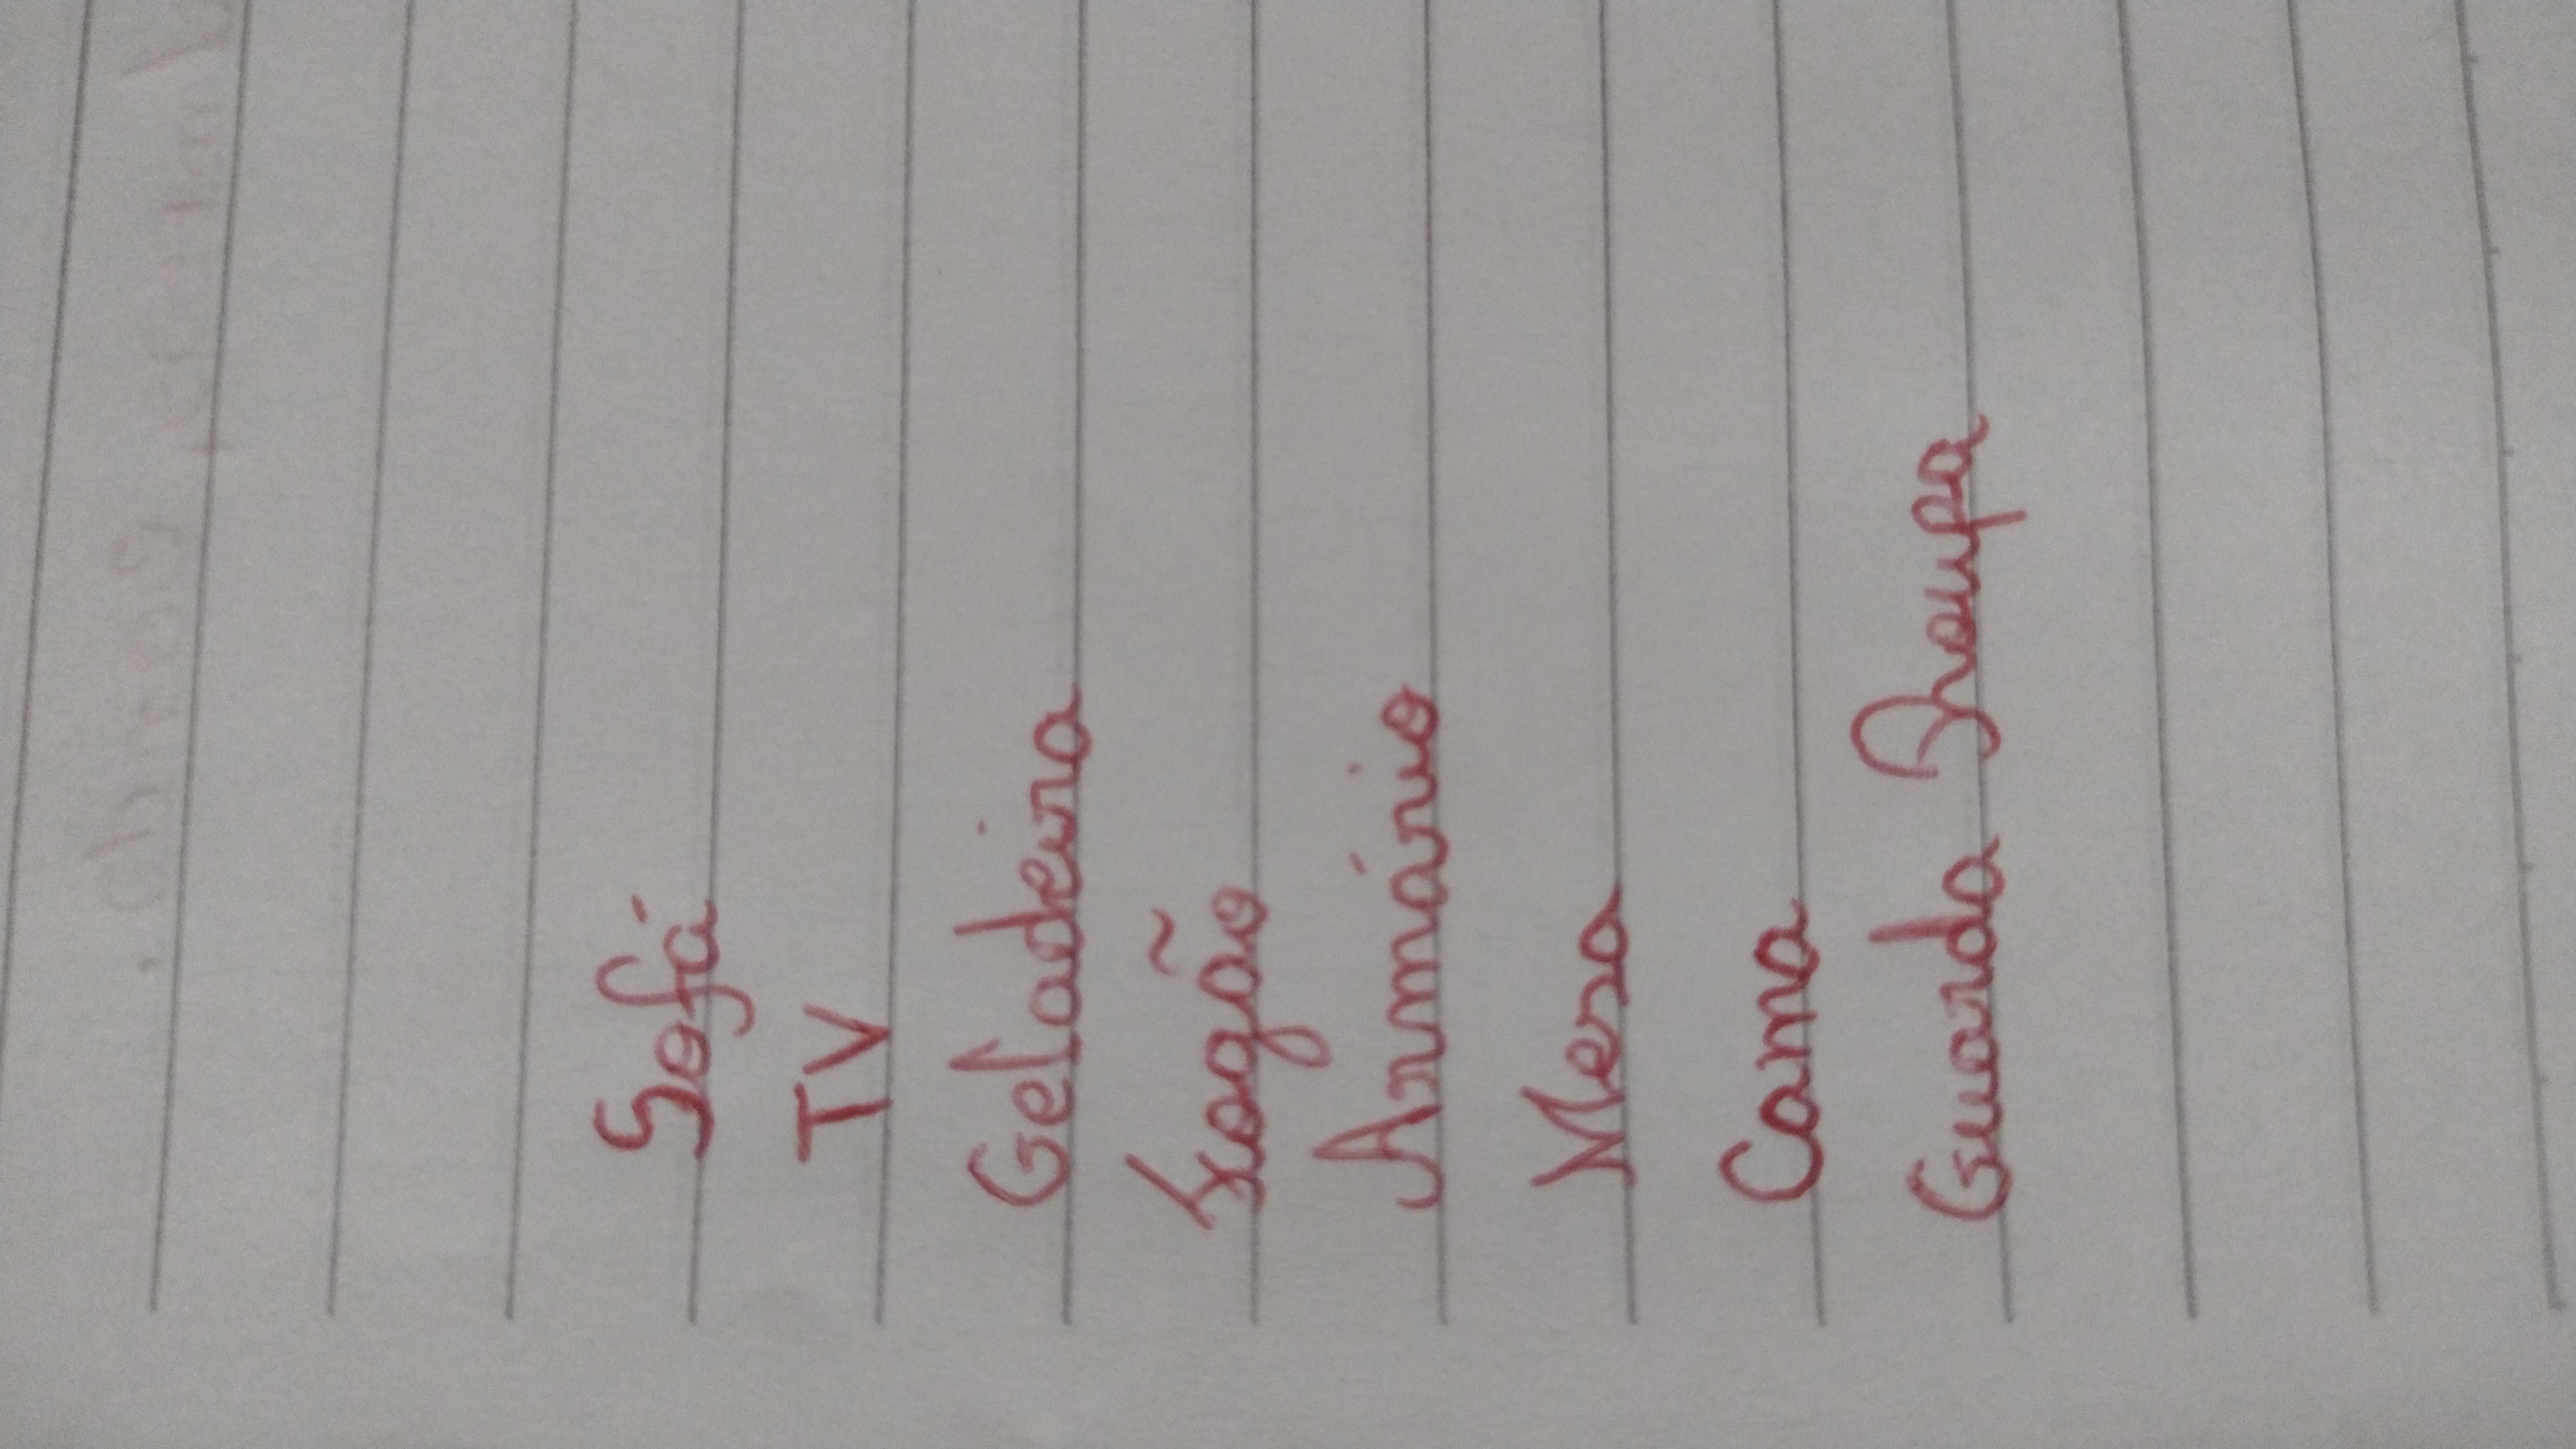 Sofá
TV
Geladeira
Fogão
Armário
Mesa
Cama
Guarda Roupa